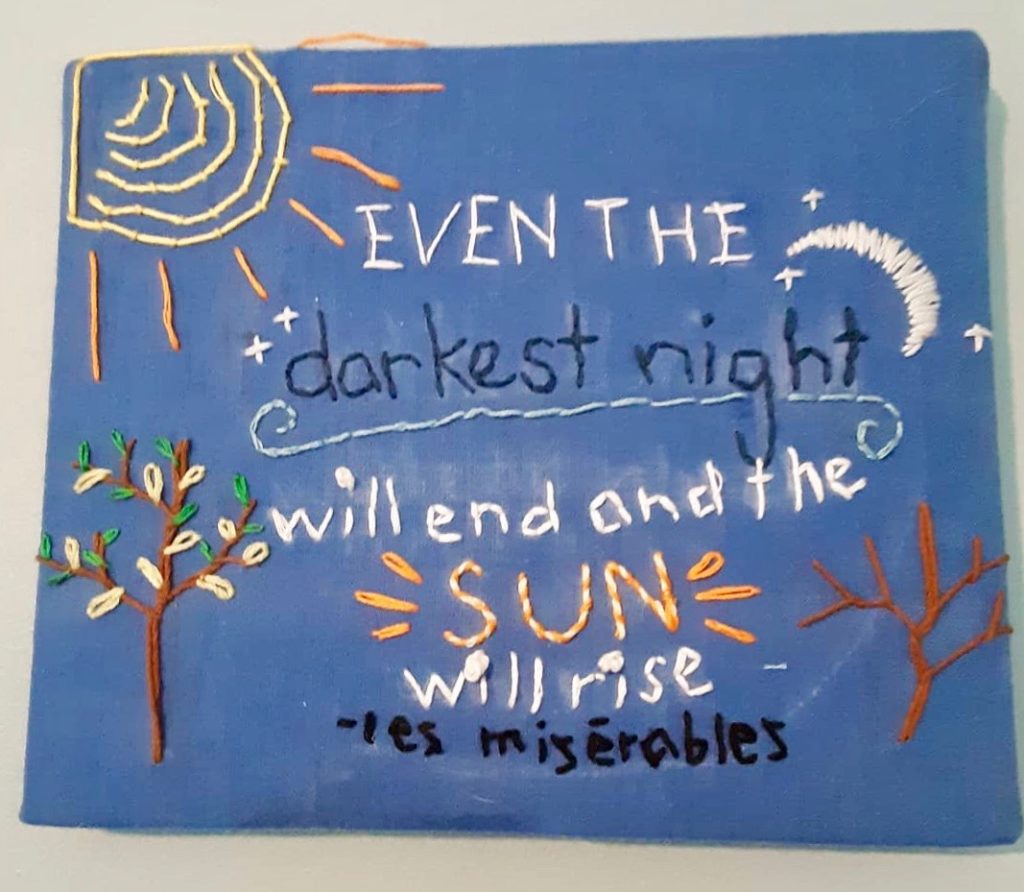 EVEN THE
darkest night
will end and the
SUN
will rise -
-les misérables